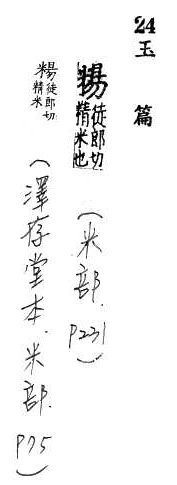 24 玉篇
徒郎切
精米也
(米部. P231)
徒郎切
精米
(澤存堂本.米部. P75)